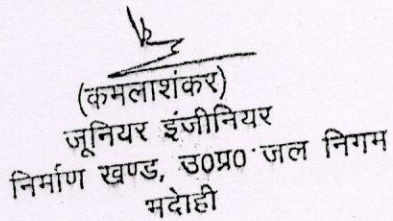 (कमलाशंकर)
जूनियर इंजीनियर
निर्माण खण्ड, उ0प्र0 जल निगम
भदोही